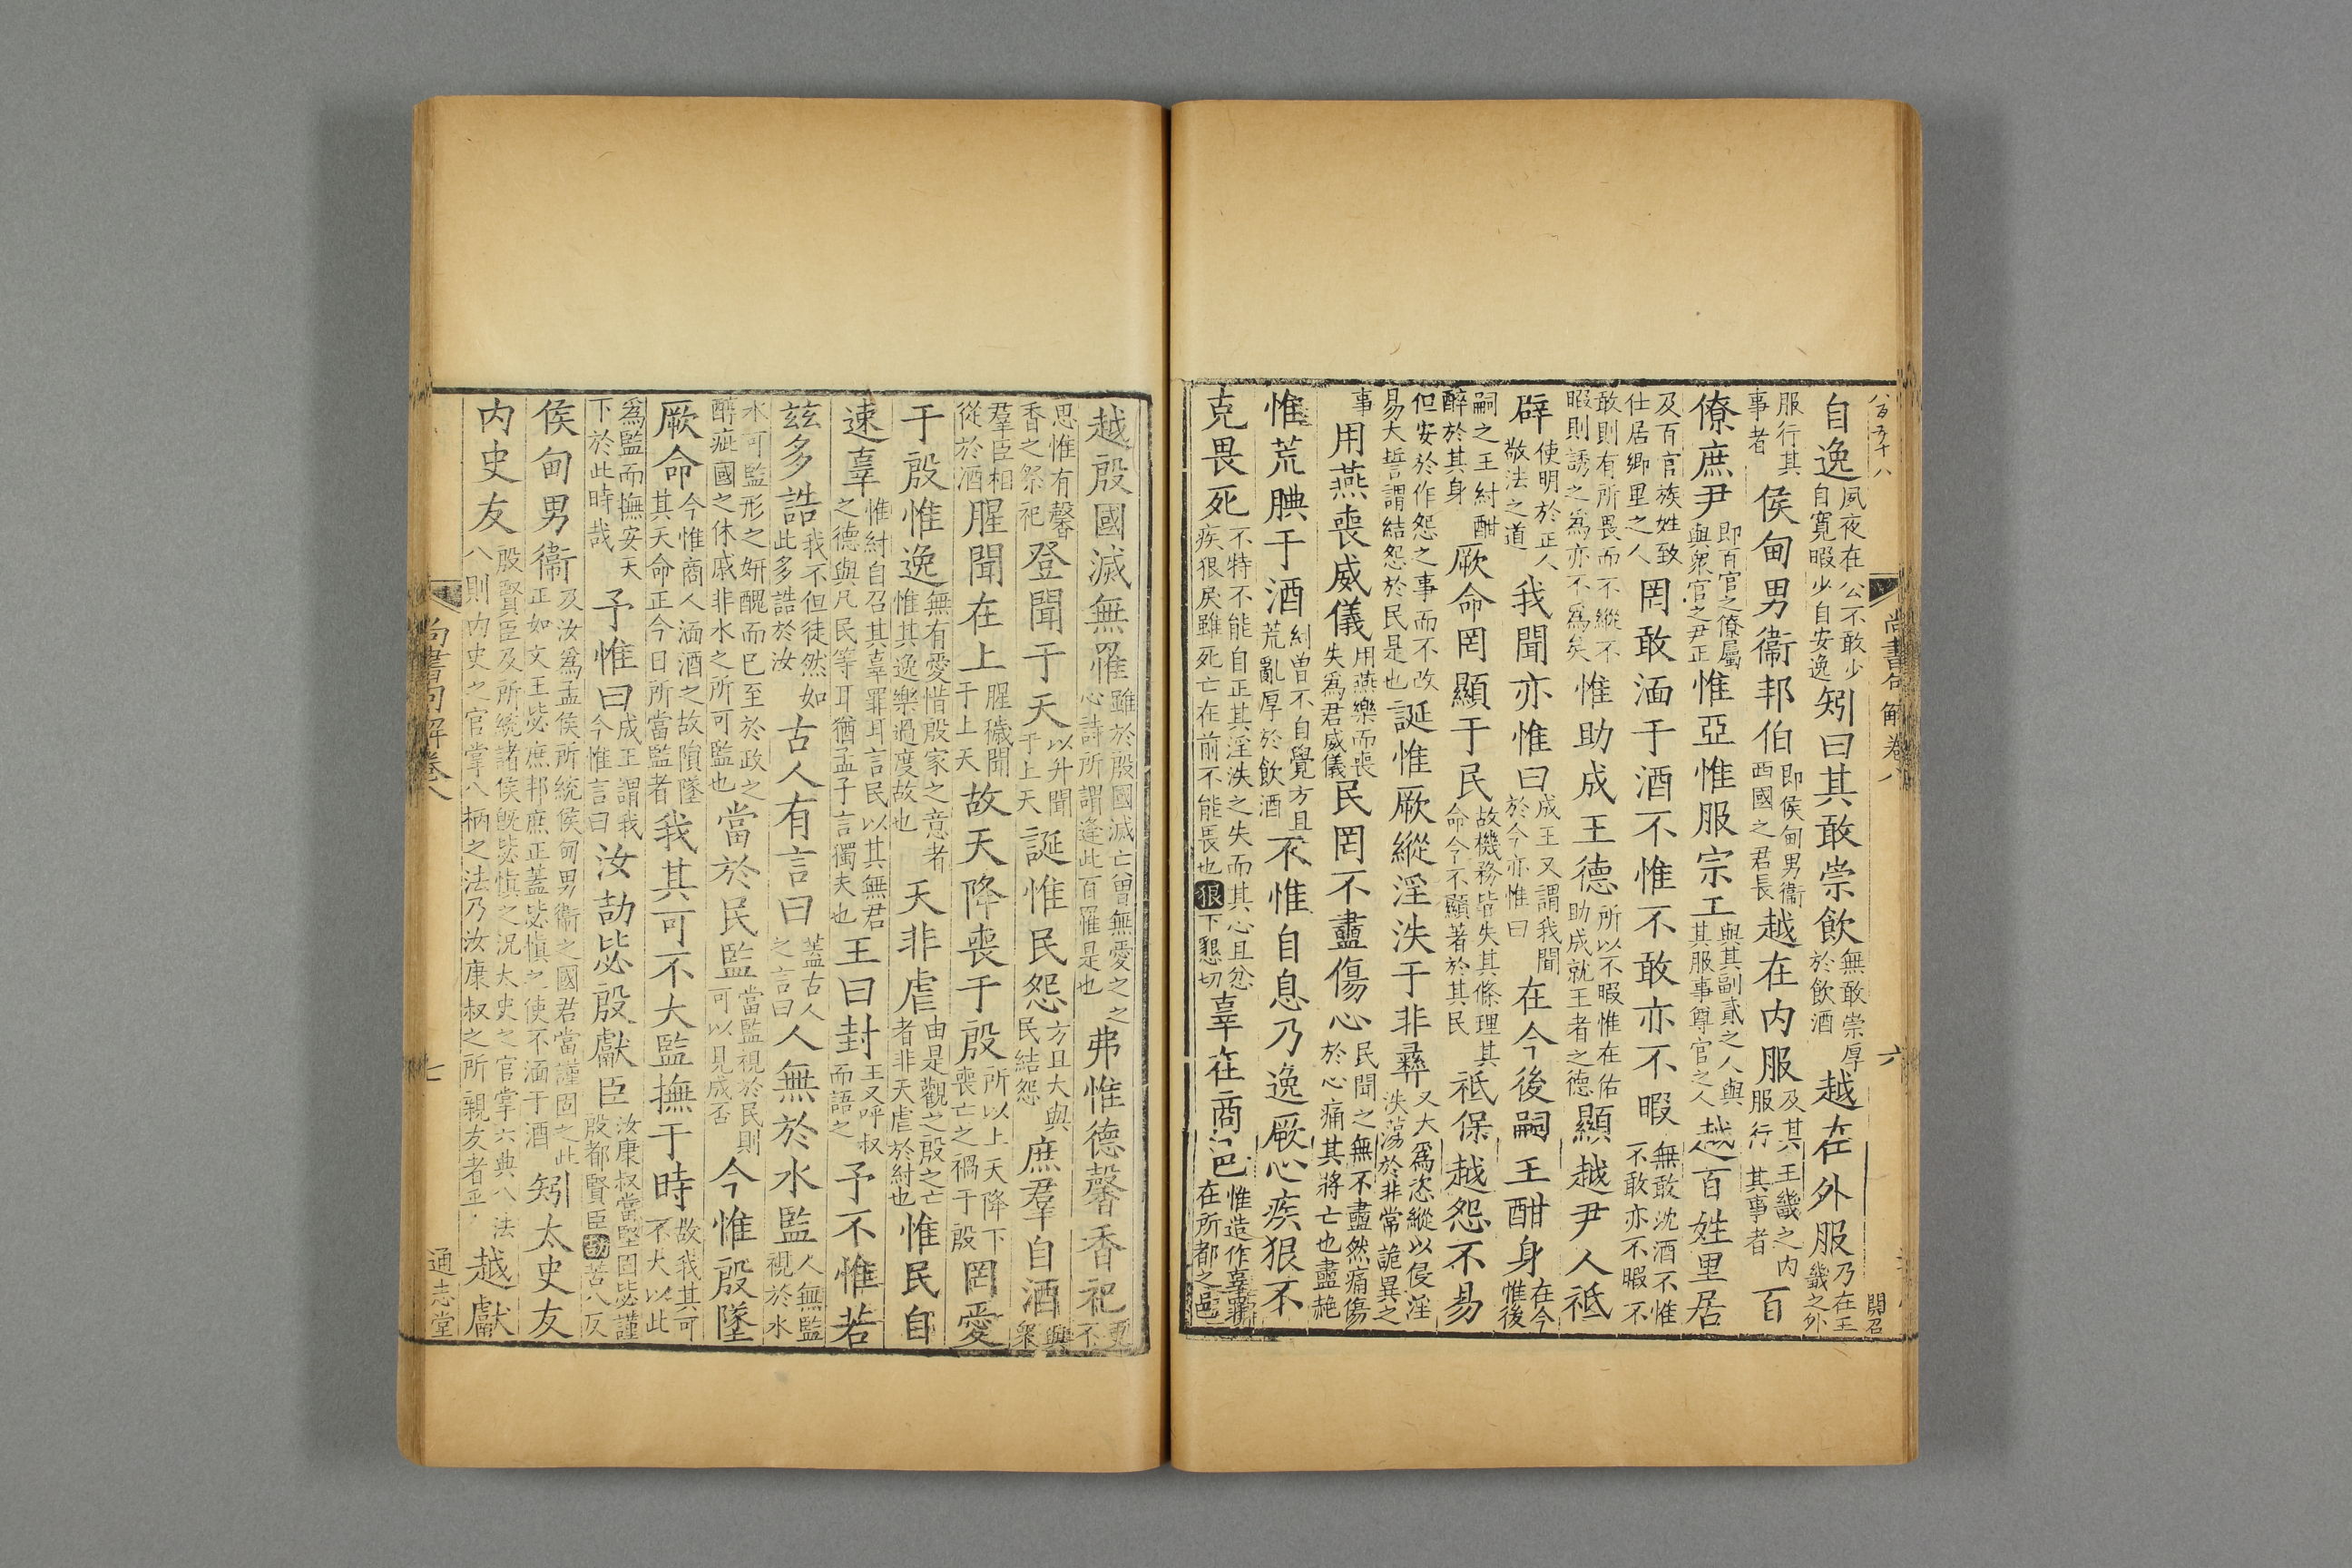 八百五十八
尚書句解卷八
六
自逸夙夜在公不敢少自寬暇少自安逸矧曰其敢崇飲無敢崇厚於飲酒越在外服乃在王畿之外
服行其事者侯甸男衞邦伯即侯甸男衞西國之君長越在內服及其王畿之內服行其事者百
僚庶尹即百官之僚屬與衆官之尹正惟亞惟服宗工與其副貳之人與其服事尊官之人越百姓里居
及百官族姓致仕居鄉里之人罔敢湎于酒不惟不敢亦不暇無敢沈酒不惟不敢亦不暇不
敢則有所畏而不縱不暇則誘之爲亦不爲矣惟助成王德所以不暇惟在佑助成就王者之德顯越尹人祇
辟使明於正人敬法之道我聞亦惟曰成王又謂我聞於今亦惟曰在今後嗣王酣身在今惟後
嗣之王紂酣醉於其身厥命罔顯于民故機務皆失其條理其命令不顯著於其民祗保越怨不易
但安於作怨之事而不改易大誓謂結怨於民是也誕惟厥縱淫泆于非彝又大爲恣縱以侵淫泆蕩於非常詭異之
事用燕喪威儀用燕樂而喪失爲君威儀民罔不衋傷心民聞之無不盡然痛傷於心痛其將亡也衋赩
惟荒腆于酒紂曾不自覺方且荒亂厚於飲酒不惟自息乃逸厥心疾狠不
克畏死不特不能自正其淫泆之失而其心且忿疾狠戾雖死亡在前不能畏也狠下懇切辜在商邑惟造作辜罪在所都之邑
越殷國滅無罹雖於殷國滅亡曾無憂之之心詩所謂逢此百罹是也弗惟德馨香祀更不
思惟有馨香之祭祀登聞于天以升聞于上天誕惟民怨方且大與民結怨庶羣自酒與衆
羣臣相從於酒腥聞在上腥穢聞于上天故天降喪于殷所以上天降下喪亡之禍于殷罔愛
于殷惟逸無有愛惜殷家之意者惟其逸樂過度故也天非虐由是觀之殷之亡者非天虐於紂也惟民自
速辜惟紂自召其辜罪耳言民以其無君之德與凡民等耳猶孟子言獨夫也王曰封王又呼叔而語之予不惟若
茲多誥我不但徒然如此多誥於汝古人有言曰蓋古人之言曰人無於水監人無監視於水
水可監形之妍醜而已至於政之醇疵國之休戚非水之所可監也當於民監當監視於民則可以見成否今惟殷墜
厥命今惟商人湎酒之故隕墜其天命正今日所當監者我其可不大監撫于時故我其可不大以此
爲監而撫安天下於此時哉予惟曰成王謂我今惟言曰汝劼毖殷獻臣汝康叔當堅固毖謹殷都賢臣劼苦八反
侯甸男衞及汝爲孟侯所統侯甸男衞之國君當謹固之此正如文王毖庶邦庶正蓋毖愼之使不湎于酒矧太史友
內史友殷賢臣及所統諸侯既毖愼之況太史之官掌六典八法八則內史之官掌八柄之法乃汝康叔之所親友者並越獻
尚書句解卷八
七
通志堂